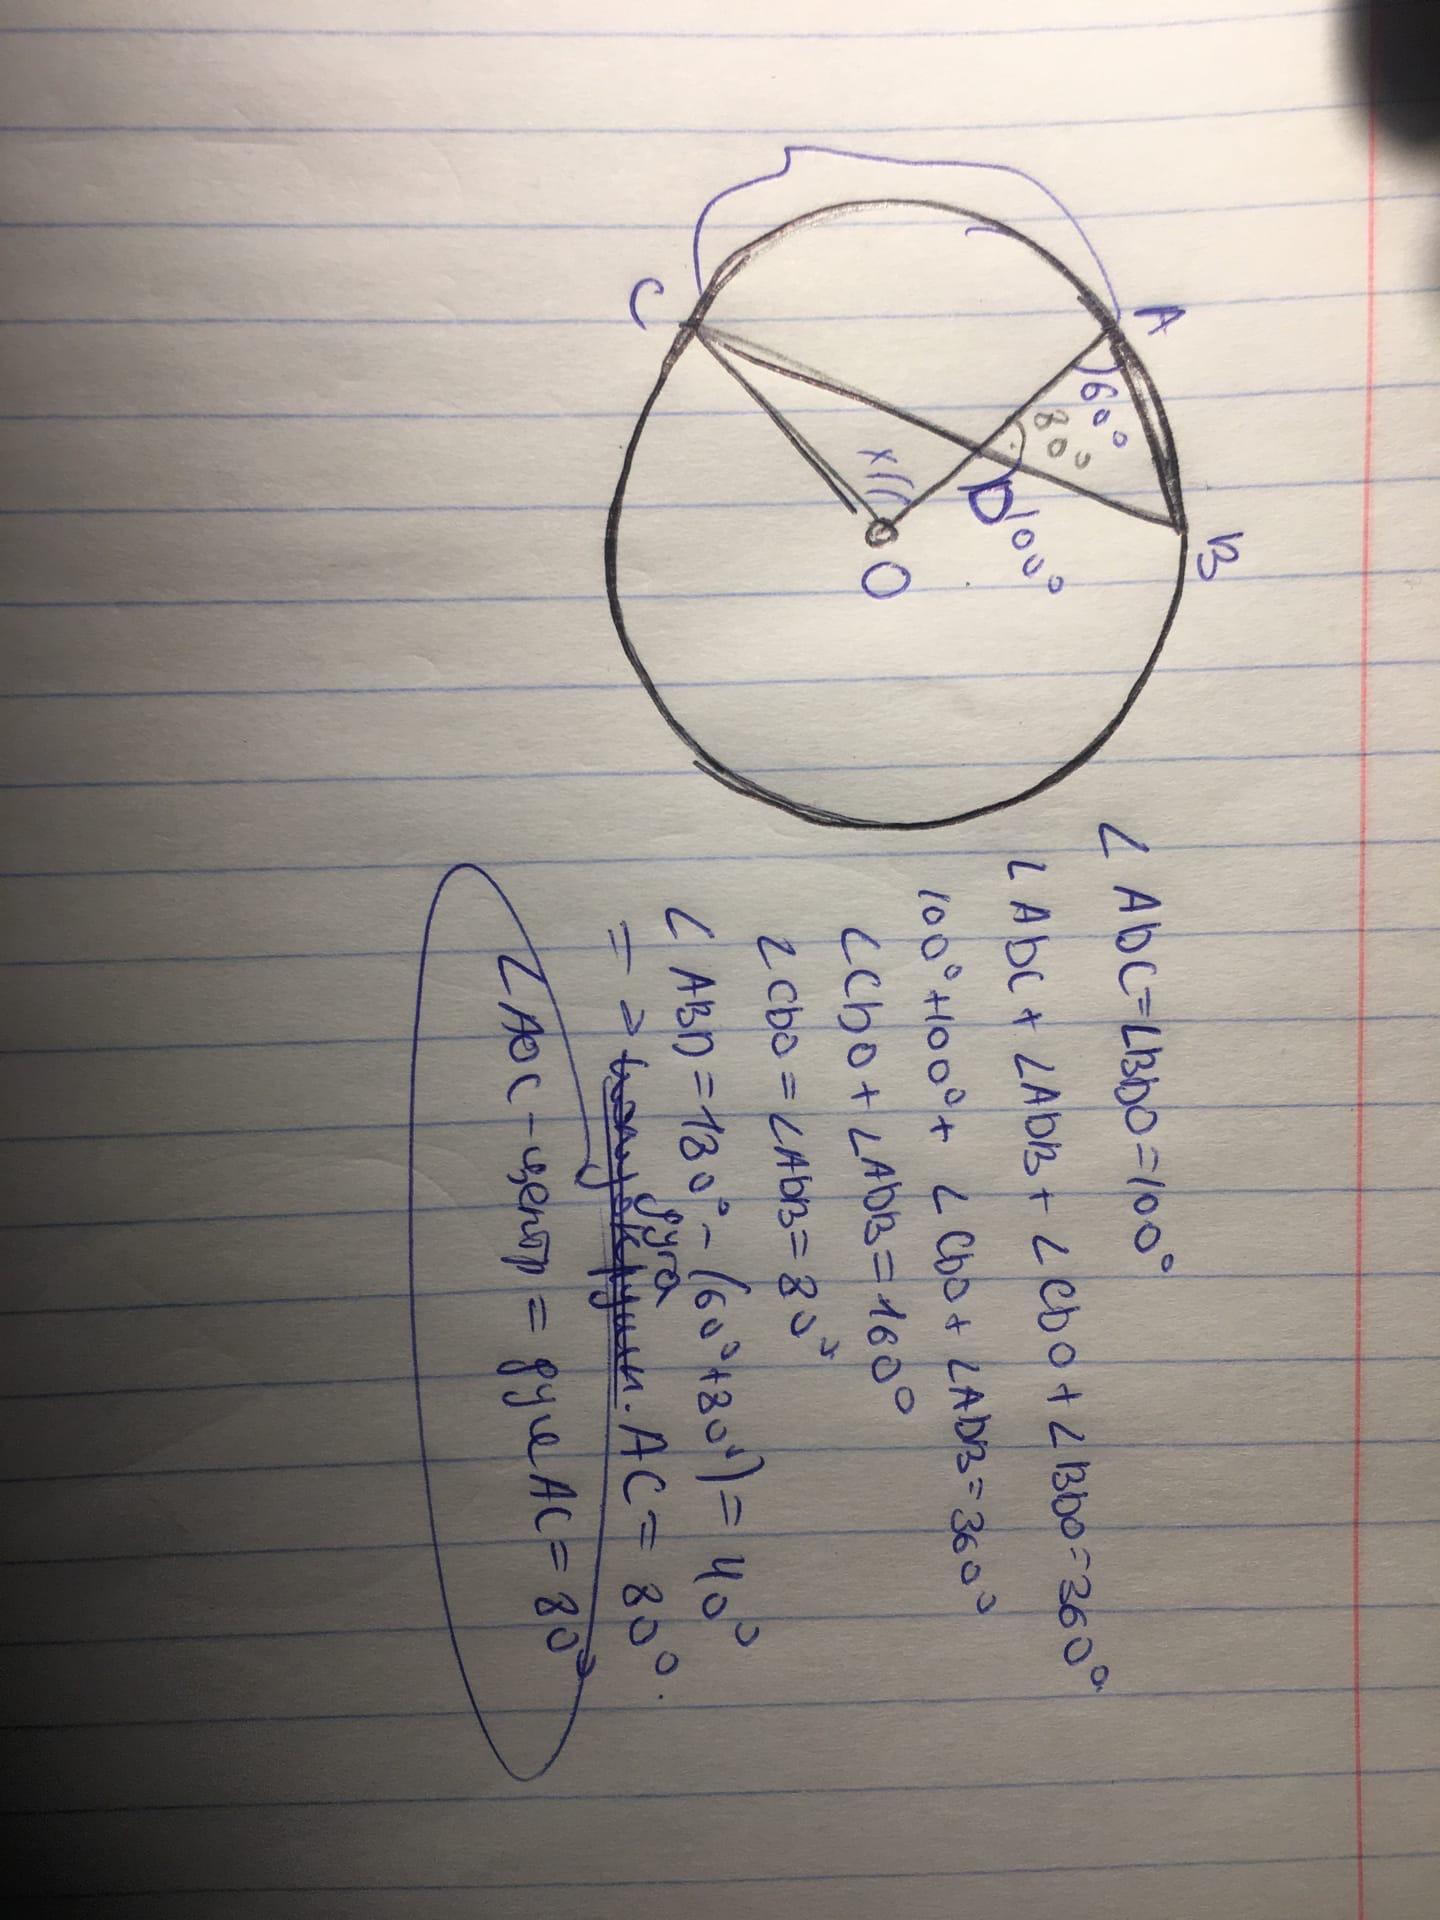 A
B
60°
80°
D 100°
C
x
O
∠ADC=∠BDO=100°
∠ADC+∠ADB+∠CDO+∠BDO=360°
100°+100°+∠CDO+∠ADB=360°
∠CDO+∠ADB=160°
∠CDO=∠ADB=80°
∠ABD=180°-(60°+80°)=40°
=> дуга AC=80°.
∠AOC-центр=дуге AC=80°